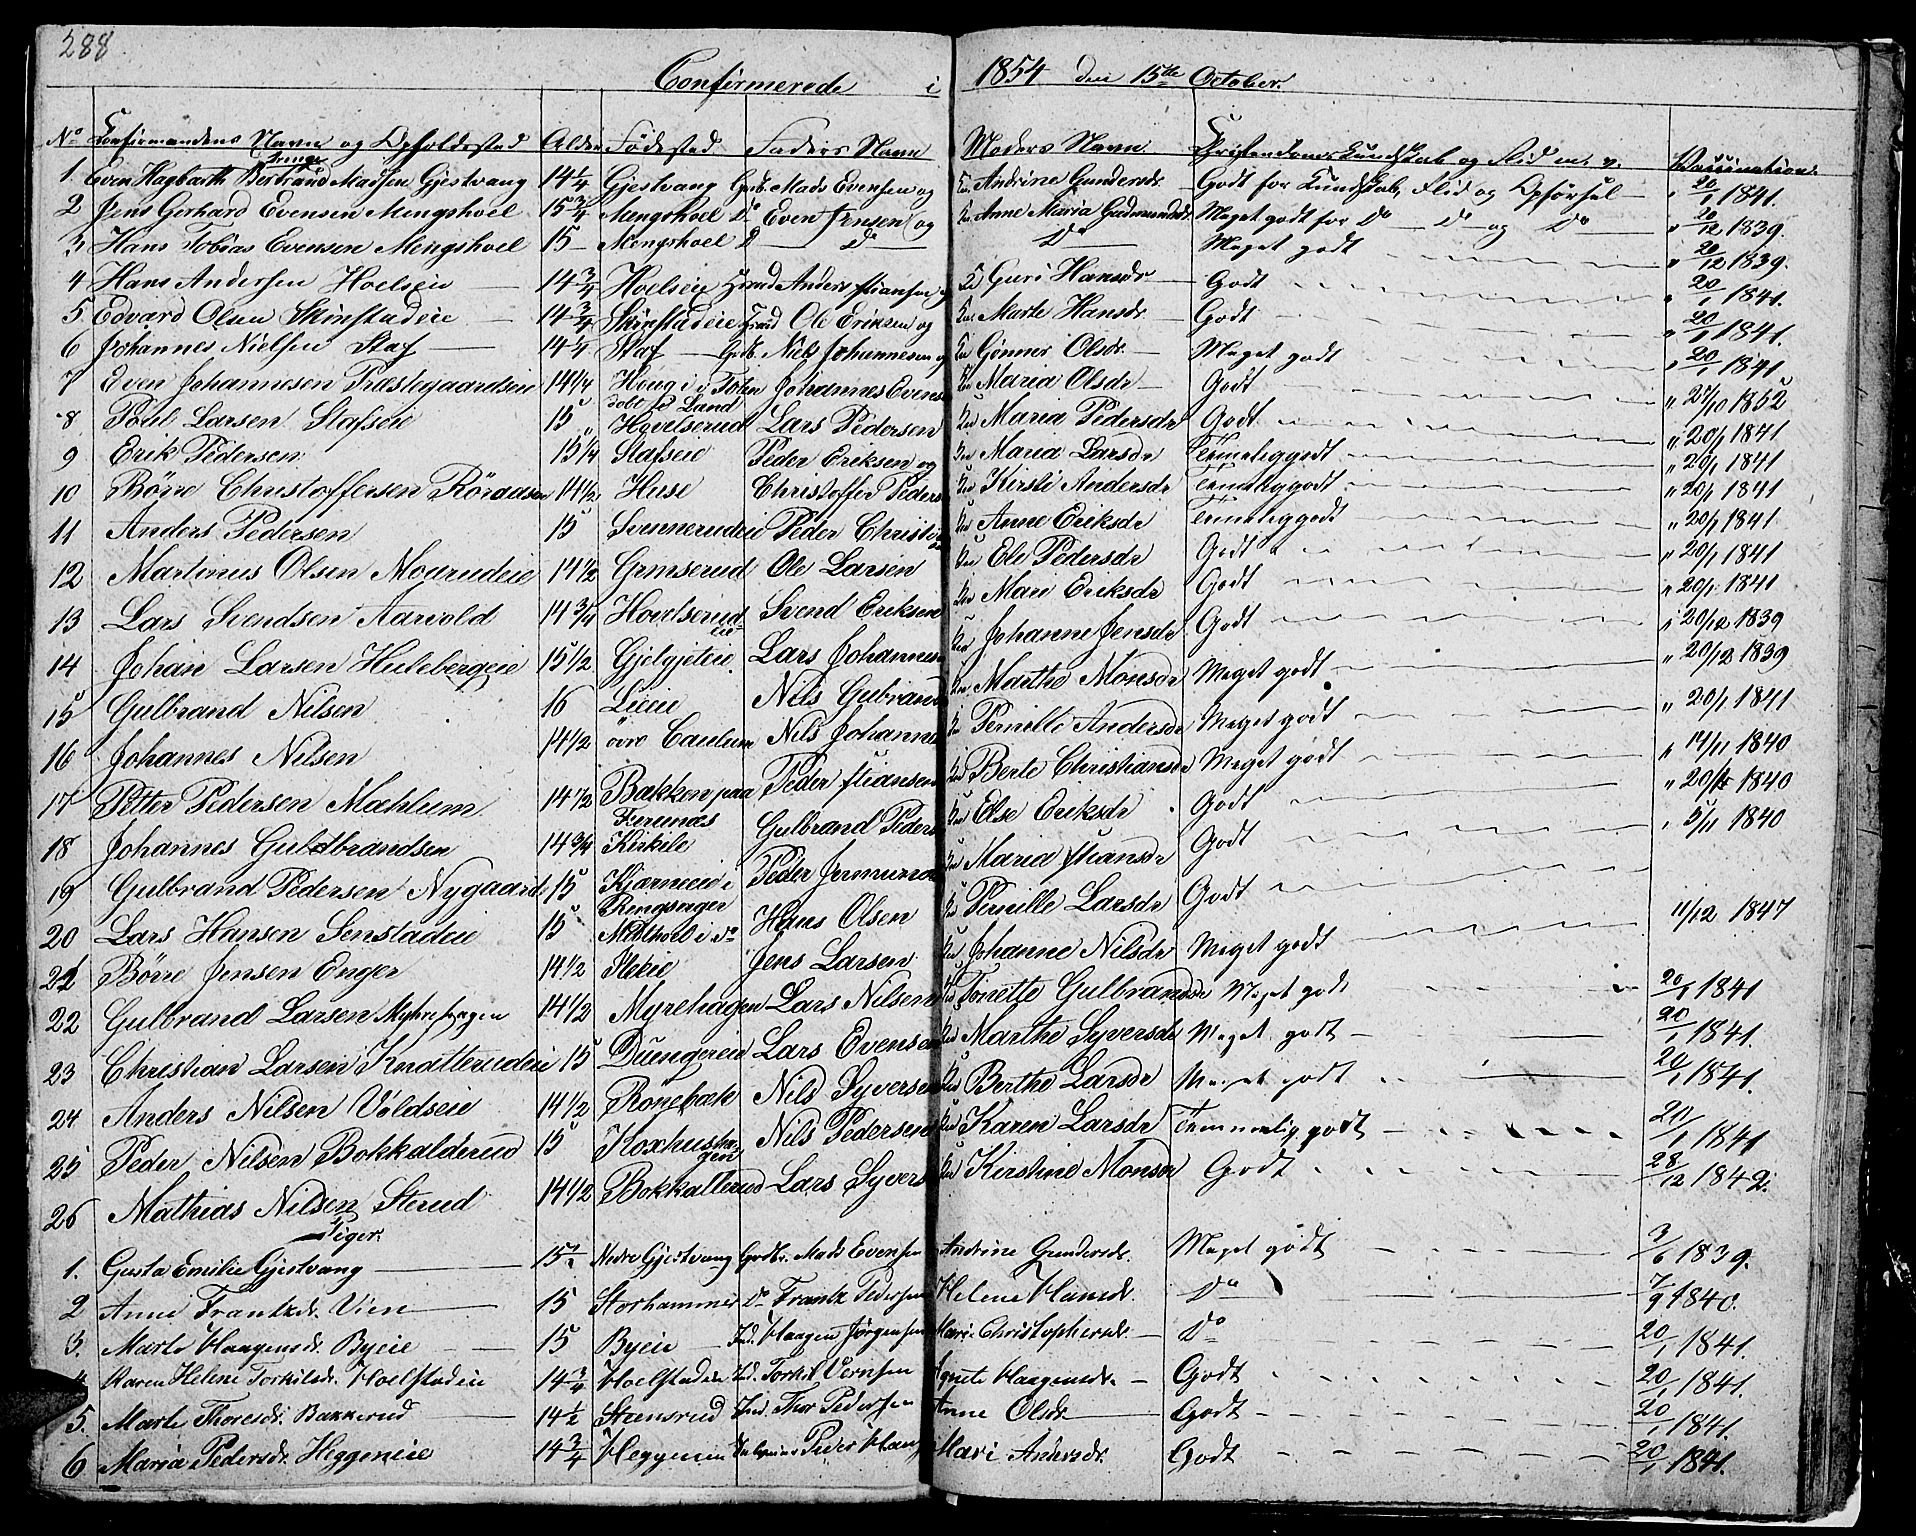 288
Confirmerede i 1854 den 15de October.
No Confirmandens Navn og Opholdssted Alder Fødested Faders Navn Moders Navn Christendomskundskab og Flid m. v. Vaccination.
Drenge
1. Even Hagbarth Bertrand Madsen Gjestvang 14 1/4 Gjestvang Gdb. Mads Evensen og Andrine Gundersdr. Godt for Kundskab, Flid og Opførsel 20/1 1841.
2 Jens Gerhard Evensen Mengshoel 15 3/4 Mengshoel Do Even Jensen og Anne Maria Gudmundsd. Meget godt for Do Do og Do 20/12 1839.
3 Hans Tobias Evensen Mengshoel 15 Mengshoel D Do Do Meget godt 20/12 1839.
4 Hans Andersen Hoelseie 14 3/4 Hoelseie Anders Guri Hansdr Godt 20/1 1841.
5 Edvard Olsen Skinstadeie 14 3/4 Skinstadeie Ole Eriksen og Marte Hansdr. Godt 20/1 1841.
6 Johannes Nielsen Staf 14 1/4 Staf Gdb. Niels Johannesen og Gønner Olsdr. Meget godt 20/1 1841
7 Even Johannesen Præstegaardseie 14 1/4 Houg i Johannes Evens Maria Olsdr Godt 27/10 1852
8 Poul Larsen Stafseie 15 Land Hovelserud Lars Pedersen Maria Pedersdr Godt 20/1 1841
9 Erik Pedersen 15 1/4 Stafseie Peder Eriksen og Maria Larsdr Temmeliggodt 20/1 1841
10 Börre Christoffersen 14 1/2 Huse Christoffer Peders Kirsti Andersdr Temmeliggodt 20/1 1841
11 Anders Pedersen 15 Svennerudeie Peder Christi Anne Eriksdr Temmeliggodt 20/1 1841
12 Martinus Olsen Moerudeie 14 1/2 Grmserud Ole Larsen Ele Pedersdr Godt 20/1 1841
13 Lars Svendsen Aarvold 14 3/4 Hovelserud eie Svend Eriksen Mari Eriksdr Godt 20/1 1841
14 Johan Larsen Hulebergeie 15 1/2 Gjelgjteie Lars Johannes Johanne Jensdr Godt 20/12 1839
15 Gulbrand Nilsen 16 Lieie Nils Gulbrand Marthe Monsdr Meget godt 20/12 1839
16 Johannes Nilsen 14 1/2 övre Caulum Nils Johanne Pernille Andersdr Meget godt 20/1 1841
17 Petter Pedersen Mæhlum 14 1/2 Bakken paa Furunæs Peder Berte Christiansdr Meget godt 14/11 1840
18 Johannes Guldbrandsen 14 3/4 Kirkile Gulbrand Peders Else Eriksdr Godt 1840
19 Gulbrand Pedersen Nygaard 15 Kjærneeie i Ringsager Peder Maria Godt 5/11 1840
20 Lars Hansen Senstadeie 15 i do Hans Olsen Pernille Larsdr Godt
21 Börre Jensen Enger 14 1/2 Jens Larsen Johanne Nilsdr Meget godt 11/12 1847
22 Gulbrand Larsen Myhrehagen 14 1/2 Myrehagen Lars Nilsen Tonette Gulbrandsdr Meget godt 20/1 1841
23 Christian Larsen Knatterudeie 15 Dungereie Lars Evensen Marthe Syversdr Meget godt 20/1 1841.
24 Anders Nilsen Voldseie 14 1/2 Rönebæk Nils Syversen Berthe Larsdr Meget godt 20/1 1841.
25 Peder Nilsen Bokkalderud 15 Koxhushagen Nils Pedersen Karen Larsdr Temmelig godt 20/1 1841
26 Mathias Nilsen Sterud 14 1/2 Bokkallerud Lars Syvers Kirstine Monsdr Godt 28/12 1842.
Piger.
1. Gusta Emilie Gjestvang 15 Nedre Gjestvang Gdbr. Mads Evensen Andrine Gundersdr. Meget godt 3/6 1839.
2 Anne Frantzdr. Vien 15 Storhammer Do Frantz Pedersen Helene Hansdr. Do 7/9 1840.
3. Marte Haagensdr. Byeie 15 Byeie Ind. Haagen Jørgensen Marie Christophersdr. Do 20/1 1841.
4 Karen Helene Torkilsdr. Hoelstadeie 14 3/4 Hoelstadeie Ind. Torkil Agnete Haagensdr. Godt 20/1 1841.
5. Marte Thoresdr. Bakkerud 14 1/2 Steensrud Ind. Thor Pedersen Anne Olsdr. Godt 20/1 1841.
6 Maria Pedersdr. Heggeneie 14 3/4 Heggeneie Peder Mari Andersdr. Godt 20/1 1841.